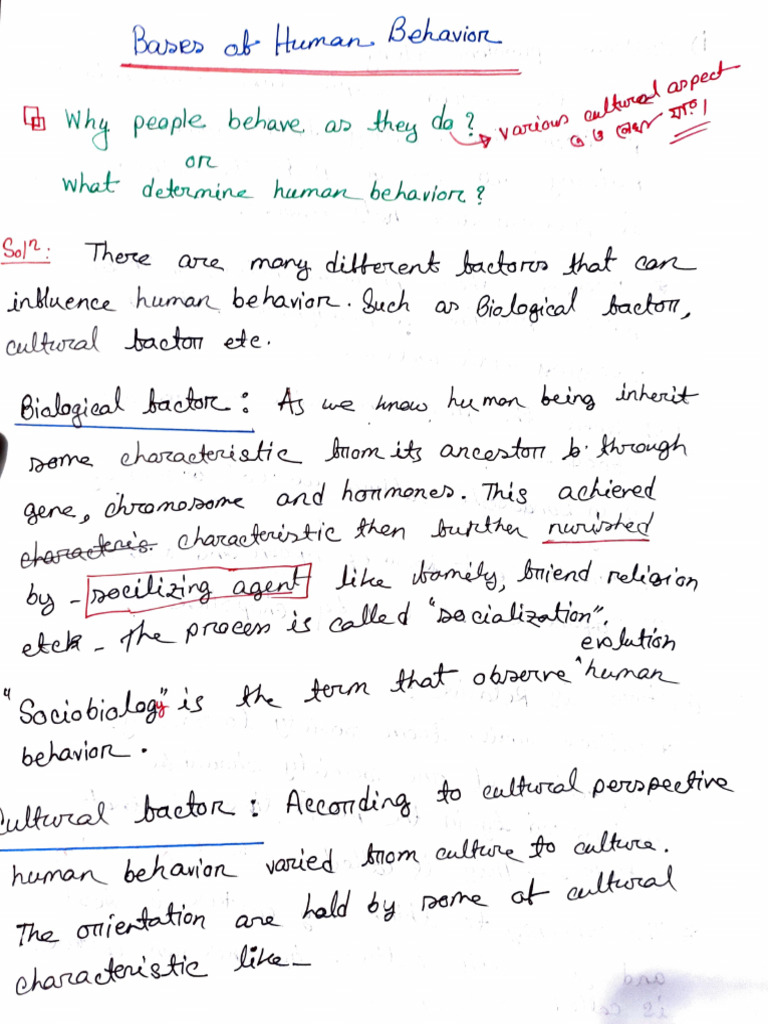 Bases of Human Behavior
Why people behave as they do? → various cultural aspect
যায়।
or
What determine human behavior?
Solⁿ: There are many different factors that can
influence human behavior. Such as Biological factor,
cultural factor etc.
Biological factor: As we know human being inherit
some characteristic from its ancestor through
gene, chromosome and hormones. This achieved
characteris. characteristic then further nurished
by - socilizing agent like family, friend religion
etc - The process is called "socialization".
evolution
"Sociobiology" is the term that observe ^ human
behavior.
Cultural factor: According to cultural perspective
human behavior varied from culture to culture.
The orientation are hald by some of cultural
characteristic like -